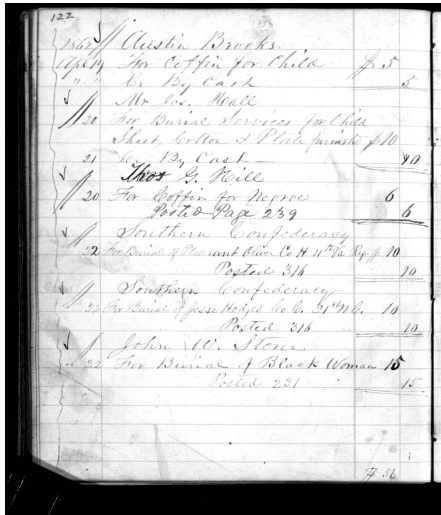 122
1862 Austin Brooks
Apl 19 For Coffin for Child $ 5
" " Cr By Cash 5
Mr Jos. Hall
20 For Burial Services for Child
Sheet, Cotton & Plate furnished $10
21 Cr By Cash 10
Thos G. Hill
20 For Coffin for Negroe 6
Posted Page 239 6
Southern Confederacy
22 For Burial of Pleasant Oliver Co H 11th Va Reg $ 10
Posted 316 10
Southern Confederacy
22 For Burial of Jesse Hodges Co C. 21st N.C. 10
Posted 316 10
John W. Stone
22 For Burial of Black Woman 15
Posted 231 15
$ 56